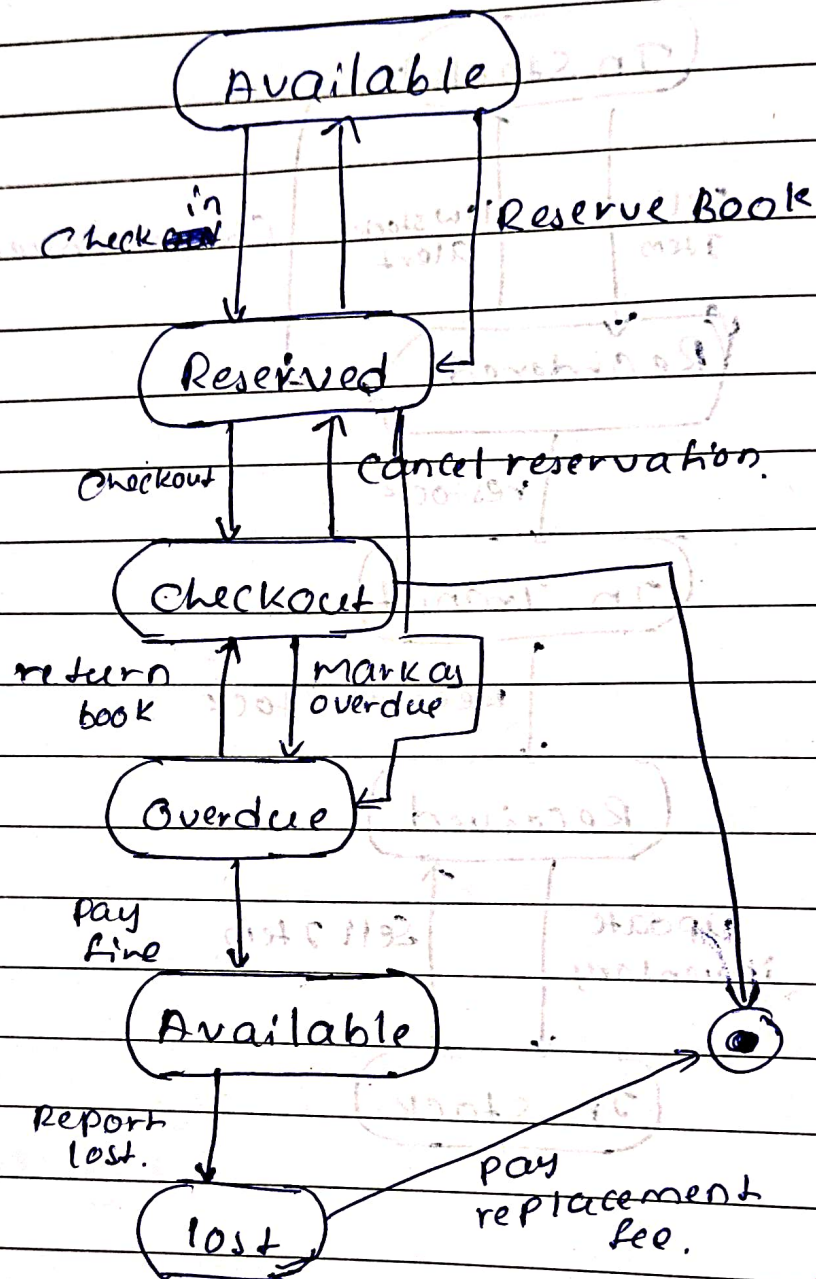 Available
in
Check
Reserve Book
Reserved
Checkout
Cancel reservation.
Checkout
return
book
Mark as
overdue
Overdue
Pay
fine
Available
Report
lost.
lost
pay
replacement
fee.